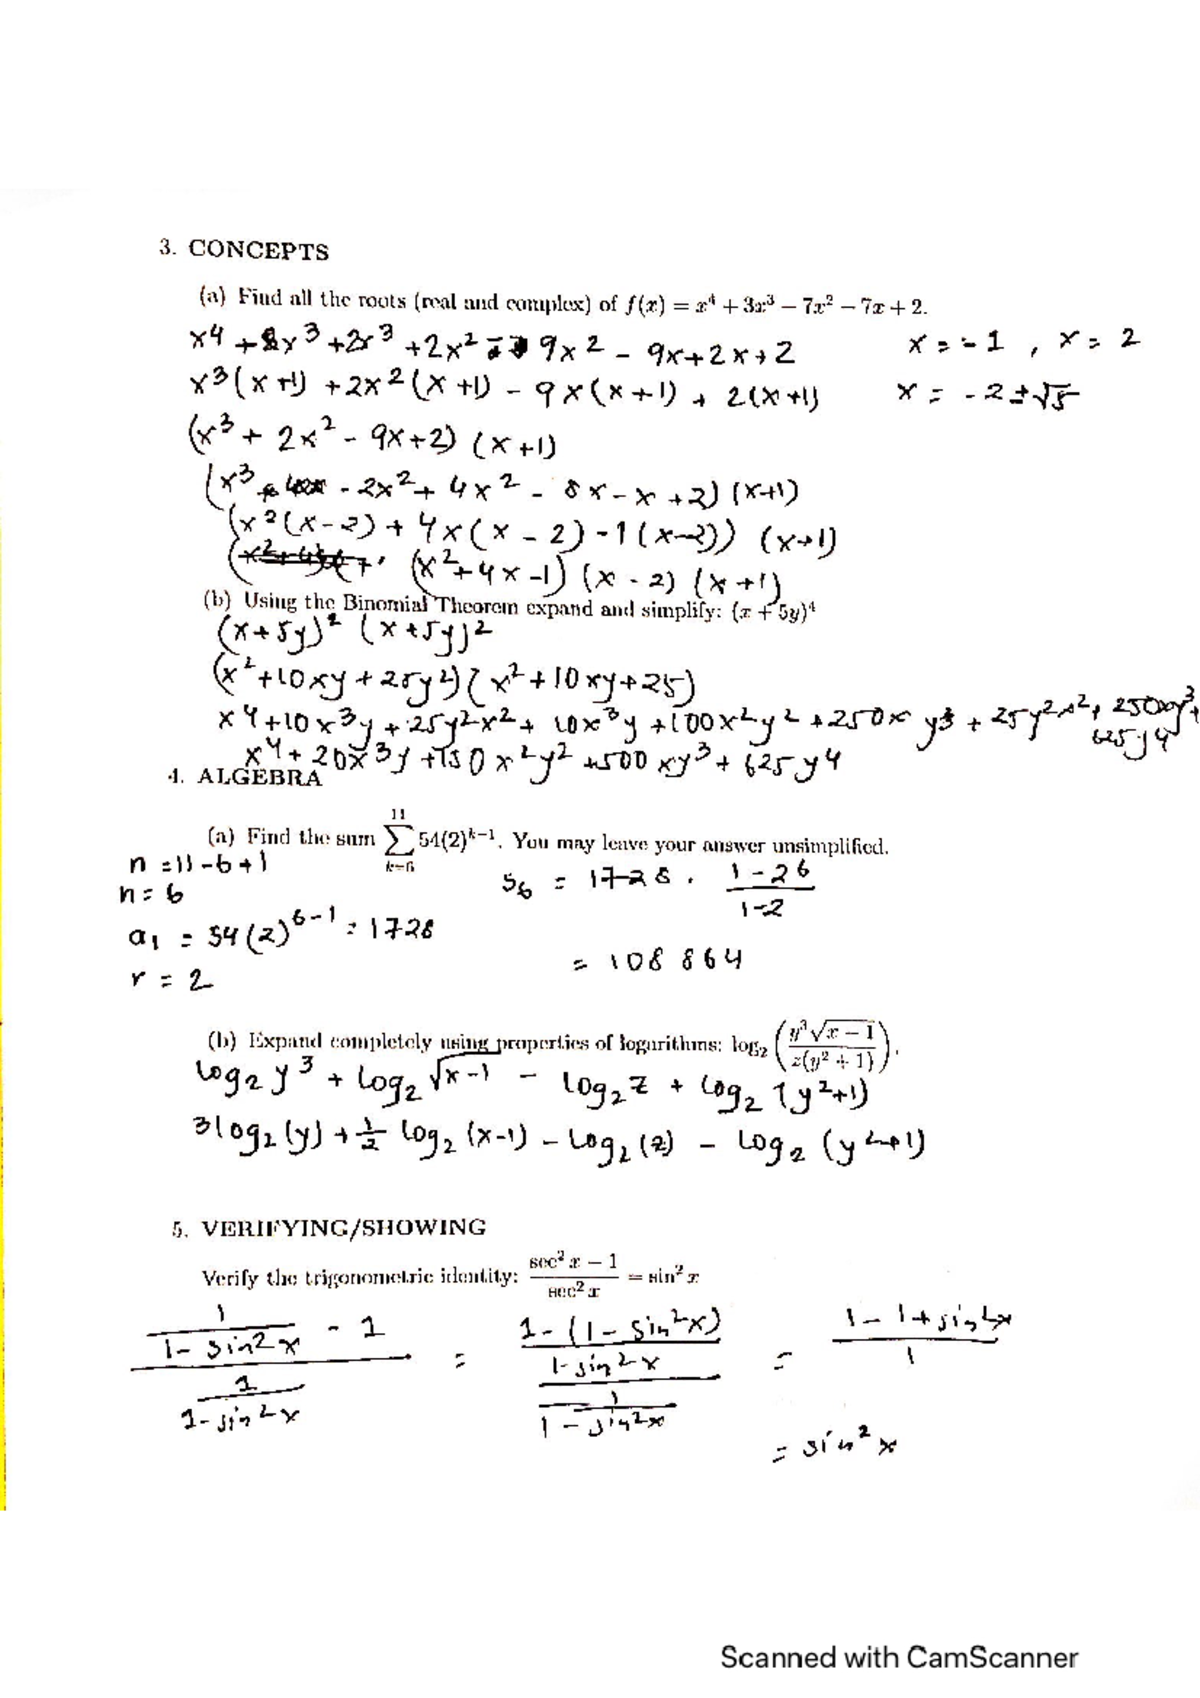 3. CONCEPTS
(a) Find all the roots (real and complex) of f(x) = x⁴ + 3x³ − 7x² − 7x + 2.
x⁴ + x³ + 2x³ + 2x² - 9x² - 9x + 2x + 2
x = -1 , x = 2
x³(x+1) + 2x²(x+1) - 9x(x+1) + 2(x+1)
x = -2 ± √5
(x³ + 2x² - 9x+2) (x+1)
(x³ - 2x² + 4x² - 8x - x + 2) (x+1)
(x²(x-2) + 4x(x-2) -1(x-2)) (x+1)
(x²+4x-1) (x-2) (x+1)
(b) Using the Binomial Theorem expand and simplify: (x + 5y)⁴
(x+5y)² (x+5y)²
(x²+10xy+25y²)(x²+10xy+25)
x⁴+10x³y+25y²x²+10x³y+100x²y²+250xy³+25y²x²+250xy³+
625y⁴
x⁴+20x³y+150x²y²+500xy³+625y⁴
4. ALGEBRA
(a) Find the sum \sum_{k=6}^{11} 54(2)^{k−1}. You may leave your answer unsimplified.
n = 11-6+1
n = 6
S₆ = 1728 · \frac{1-26}{1-2}
a₁ = 54(2)^{6-1} = 1728
= 108 864
r = 2
(b) Expand completely using properties of logarithms: log₂ (\frac{y³√(x − 1)}{z(y² + 1)}).
log₂ y³ + log₂ √(x-1) - log₂ z + log₂ (y²+1)
3log₂(y) + ½ log₂ (x-1) - log₂(z) - log₂ (y²+1)
5. VERIFYING/SHOWING
Verify the trigonometric identity: \frac{sec² x − 1}{sec² x} = sin² x
\frac{\frac{1}{1-sin²x} - 1}{\frac{1}{1-sin²x}} = \frac{\frac{1-(1-sin²x)}{1-sin²x}}{\frac{1}{1-sin²x}} = \frac{1-1+sin²x}{1}
= sin² x
Scanned with CamScanner